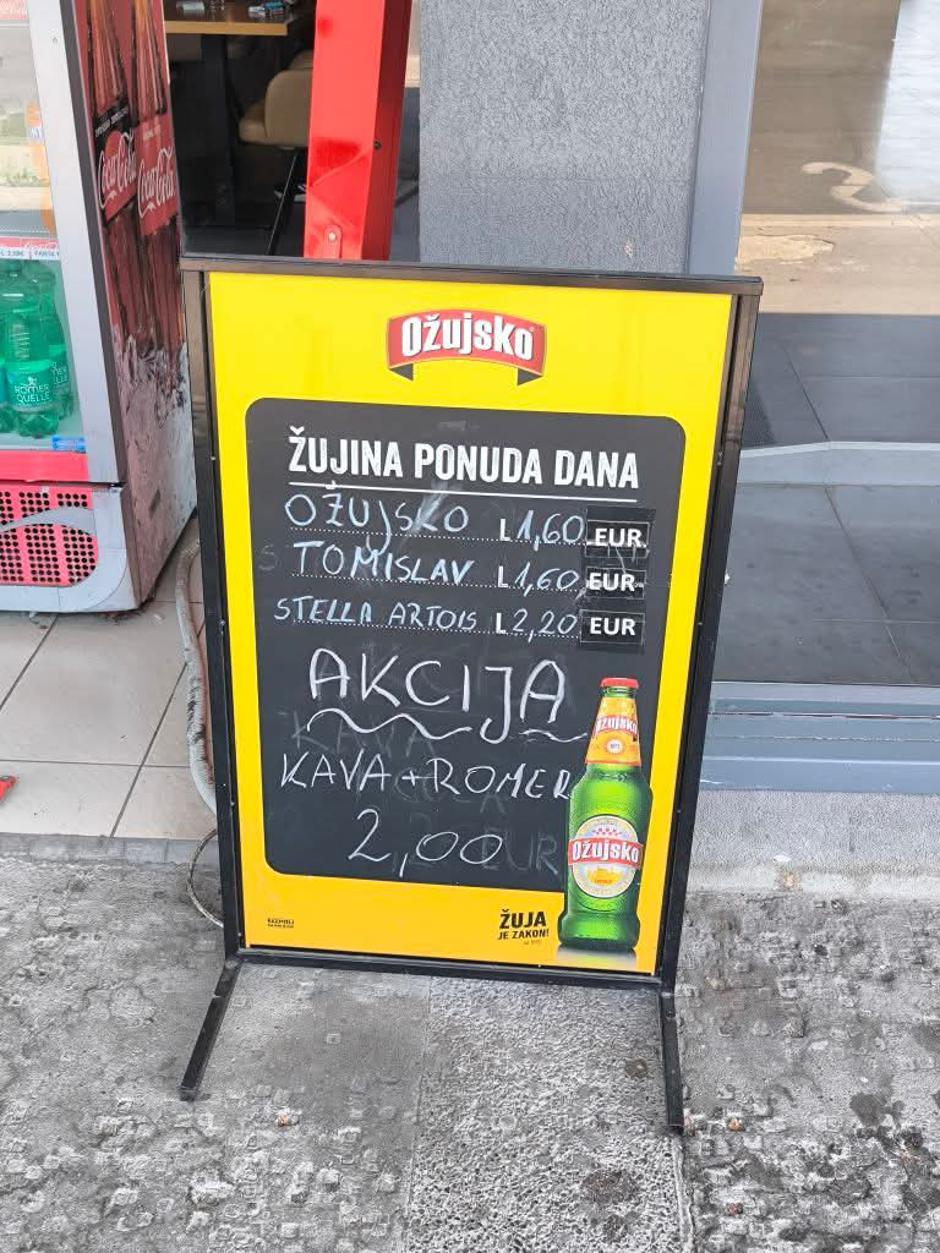 Coca-Cola
Coca-Cola
RÖMER
QUELLE
Ožujsko
ŽUJINA PONUDA DANA
OŽUJSKO L 1,60 EUR
TOMISLAV L 1,60 EUR
STELLA ARTOIS L 2,20 EUR
AKCIJA
KAVA + ROMER
2,00 EUR
Ožujsko
Ožujsko
ŽUJA
JE ZAKON!